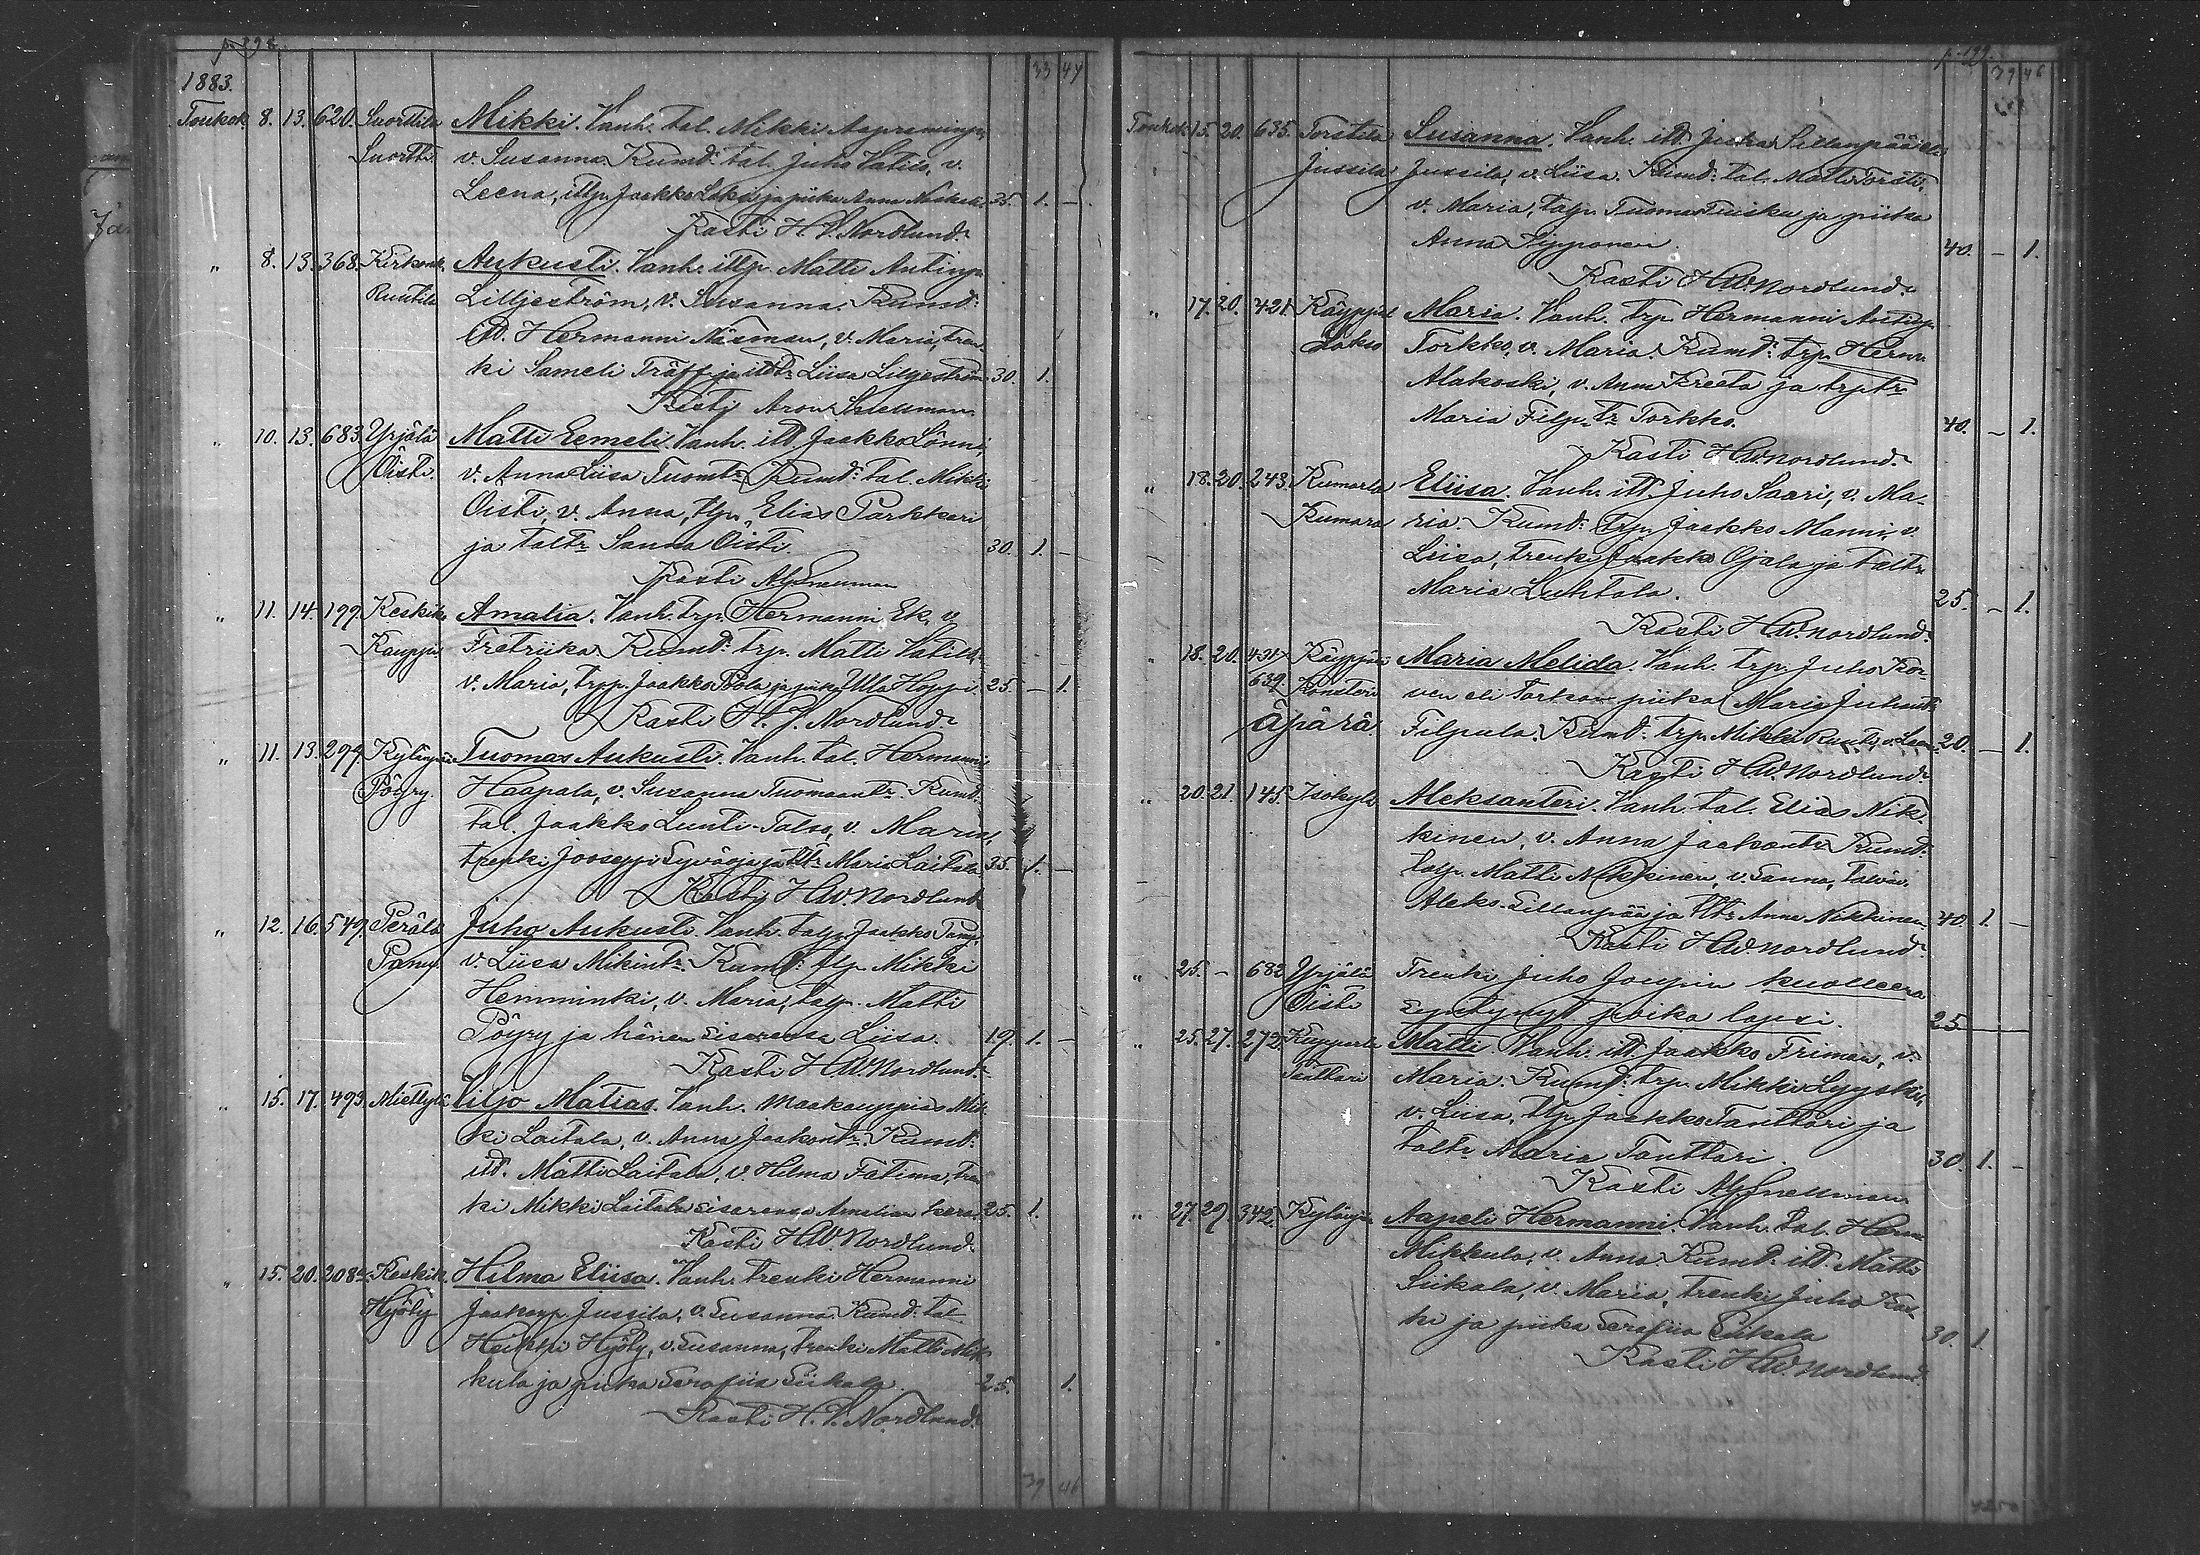 p. 398.
1883.
33 44
Toukok. 8. 13. 620. Suorttila Mikki. Vanh. tal. Mikki
Suortti. v. Susanna. Kumd: tal. Juho Vatilo, v.
Leena, itlp. Jaakko ja piika Anna 35. 1. –
Kasti H. V. Nordlund.
" 8. 13. 368. Kirkonk. Aukusti. Vanh. ittp. Matti Antinp.
Ruutila Lilljeström, v. Susanna. Kumd:
itl. Hermanni Näsman, v. Maria, tren-
ki Sameli Träff ja itltr. Liisa Liljeström 30. 1.
Kasti Aron Snellman.
" 10. 13. 683. Yrjälä Matti Eemeli. Vanh. itl. Jaakko Lönni,
Öisti. v. Anna Liisa Tuomtr. Kumd: tal. Mikki
Öisti, v. Anna, tlp. Elias Parkkari
ja taltr. Sanna Öisti. 30. 1. –
Kasti Alf Snellman
" 11. 14. 199. Keskik. Amalia. Vanh. trp. Hermanni Ek, v.
Kauppi Fretriika. Kumd: trp. Matti Vatilo
v. Maria, trpp. Jaakko Pola ja piika Ulla Hoppi. 25. – 1.
Kasti H. V. Nordlund.
" 11. 13. 299. Kylänpää Tuomas Aukusti. Vanh. tal. Hermanni
Pöyry. Haapala, v. Susanna Tuomaantr. Kumd:
tal. Jaakko Lunti-Talso, v. Maria,
trenki Jooseppi Syväoja ja tltr. Maria Laitala 35. 1. –
Kasti H.W. Nordlund.
" 12. 16. 549. Perälä Juho Aukusti. Vanh. talp. Jaakko
v. Liisa Mikintr. Kumd: tlp. Mikki
Hemminki, v. Maria, talp. Matti
Pöyry ja hänen sisarensa Liisa. 19. 1. –
Kasti H.W. Nordlund.
" 15. 17. 493. Miettylä Viljo Matias. Vanh. maakauppias Mik-
ki Laitala, v. Anna Jaakontr. Kumd:
itl. Matti Laitala, v. Hilma Fatima, tren
ki Mikki Laitala sisarensa Amalian kera. 25. 1.
Kasti H.W. Nordlund.
" 15. 20. 208. Keskik. Hilma Eliisa. Vanh. trenki Hermanni
Hyöly Jaakonp. Jussila, v. Susanna. Kumd: tal.
Heikki Hyöly, v. Susanna, trenki Matti Mik-
kula ja piika Serafiia Siikala. 25. 1.
Kasti H. V. Nordlund.
39 46
p. 199.
39 46
Toukok. 15. 20. 635. Torstila Susanna. Vanh. itl. Juha Sillanpää eli
Jussila Jussila, v. Liisa. Kumd: tal. Matti Torsti,
v. Maria, talp. Tuomas Tuisku ja piika
Anna Sipponen. 40. – 1.
Kasti H.W. Nordlund.
" 17. 20. 421. Käyppä Maria. Vanh. trp. Hermanni Antinp.
Lakso Torkko, v. Maria. Kumd: trp. Herm.
Alakoski, v. Anna Kreeta ja trptr.
Maria Filp. tr. Torkko. 40. – 1.
Kasti H.W. Nordlund.
" 18. 20. 243. Kumarla Eliisa. Vanh. itl. Juho Saari, v. Ma-
Kumara ria. Kumd: trp. Jaakko Manni, v.
Liisa, trenki Jaakko Ojala ja taltr.
Maria Luhtala. 25. – 1.
Kasti H.W. Nordlund.
" 18. 20. 421 Käyppä Maria Melida. Vanh. trp. Juho
639. Konsteri ven eli piika Maria Juhontr.
Äpärä Filpula. Kumd: trp. Mikki v. Leena 20. – 1.
Kasti H.W. Nordlund.
" 20. 21. 145. Isokylä Aleksanteri. Vanh. tal. Elias Nik-
kinen, v. Anna Jaakontr. Kumd:
talp. Matti Nikkinen, v. Sanna, talväv.
Aleks. Sillanpää ja tltr. Anna Nikkinen. 40. 1. –
Kasti H.W. Nordlund.
" 25. – 682 Yrjälä Trenki Juho Joupin kuolleena
Öisti syntynyt poika lapsi. 25
" 25. 27. 272. Kupparla Matti. Vanh. itl. Jaakko Friman, v.
Tanttari Maria. Kumd: trp. Mikki
v. Liisa, tlp. Jaakko Tanttari ja
taltr. Maria Tanttari. 30. 1. –
Kasti Alf Snellman
" 27. 29. 342. Kylänp. Aapeli Hermanni. Vanh. tal. Herm.
Mikkula, v. Anna. Kumd: itl. Matti
Siikala, v. Maria, trenki Juho
ki ja piika Serafiia Siikala 30. 1.
Kasti H.W. Nordlund.